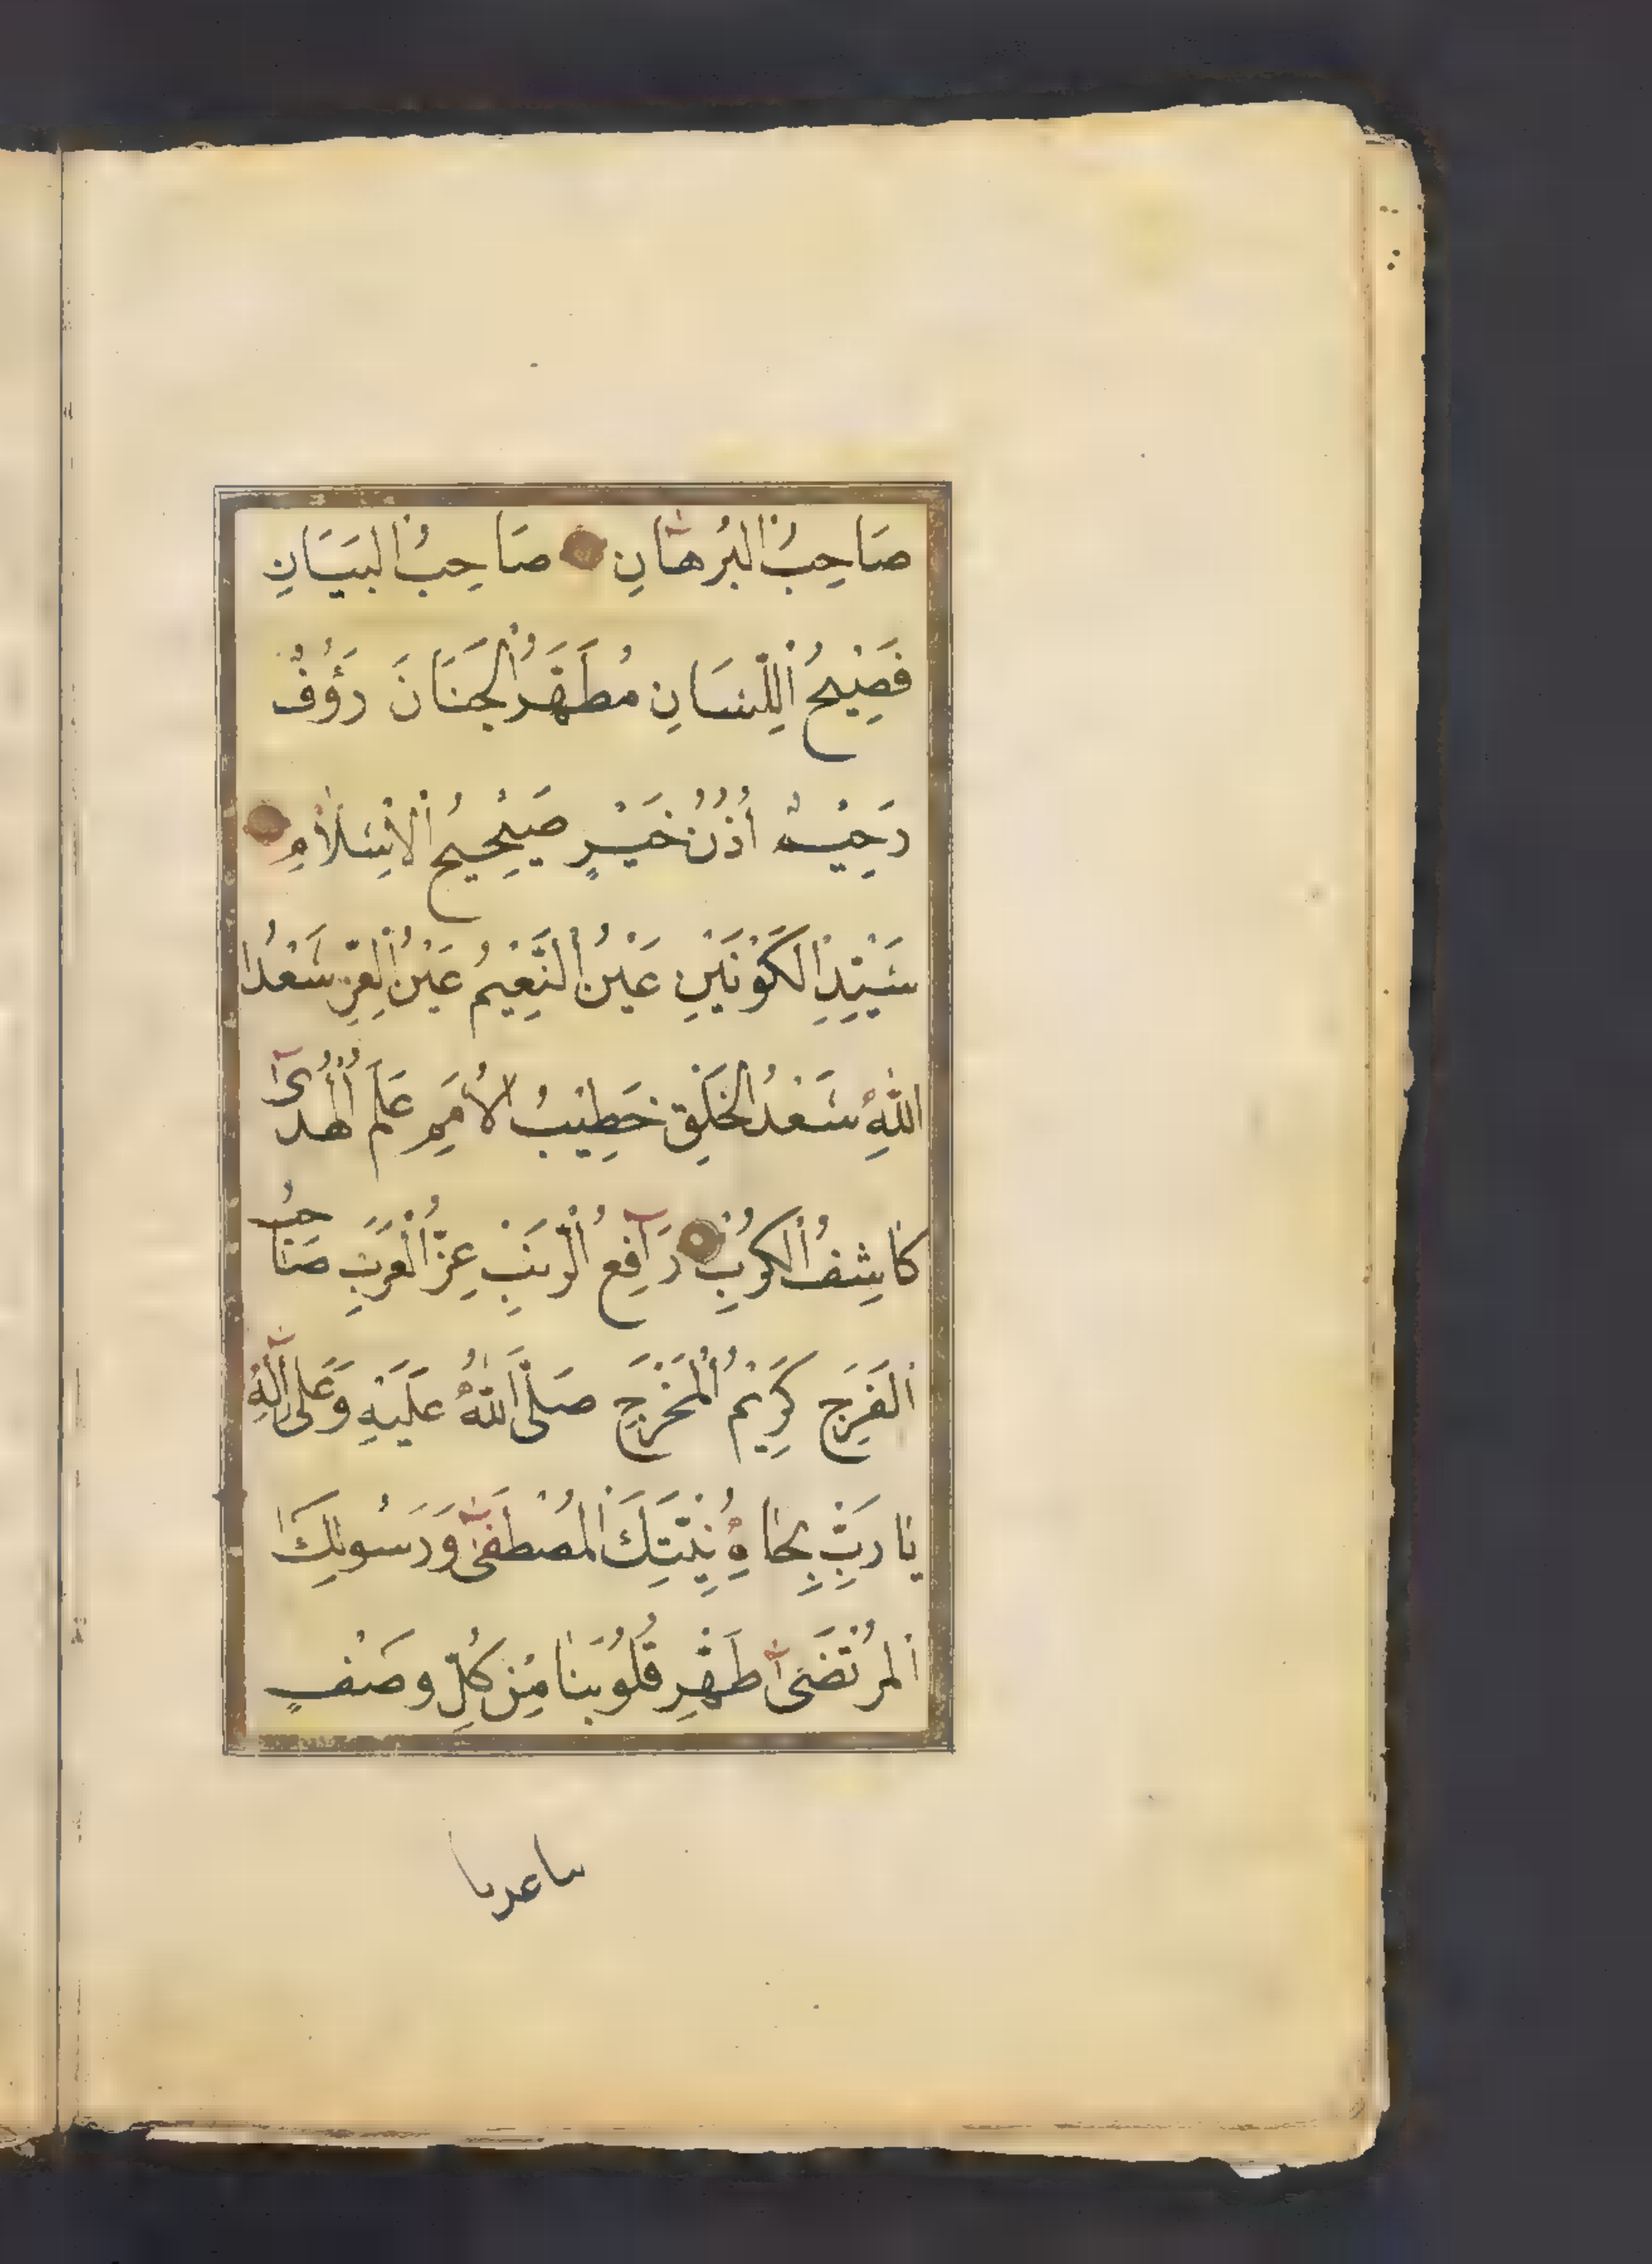 صَاحِبُ الْبُرْهَانِ صَاحِبُ الْبَيَانِ
فَصِيْحُ الْلِّسَانِ مُطَهَّرُ الْجَنَانَ رَؤُفٌ
رَحِيْمٌ أُذُنُ خَيْرٍ صَحِيْحُ الْاِسْلَامِ
سَيِّدِ الْكَوْنَيْنِ عَيْنُ النَّعِيْمُ عَيْنُ الْعِزِّ سَعْدُ
اللهِ سَعْدُ الْخَلْقِ خَطِيْبُ الْأُمَمِ عَلَمُ الْهُدَى
كَاشِفُ الْكُرَبِ رَافِعُ الْرُتَبِ عِزُّ الْعَرَبِ صَاحِبُ
الْفَرَجِ كَرِيْمُ الْمَخْرَجِ صَلَّى اللهُ عَلَيْهِ وَعَلَى اٰلِهِ
يَا رَبِّ بِجَاهِ نَبِيِّكَ الْمُصْطَفٰى وَرَسُولِكَ
الْمُرْتَضَى طَهِّرْ قُلُوْبَنَا مِنْ كُلِّ وصَفٍ